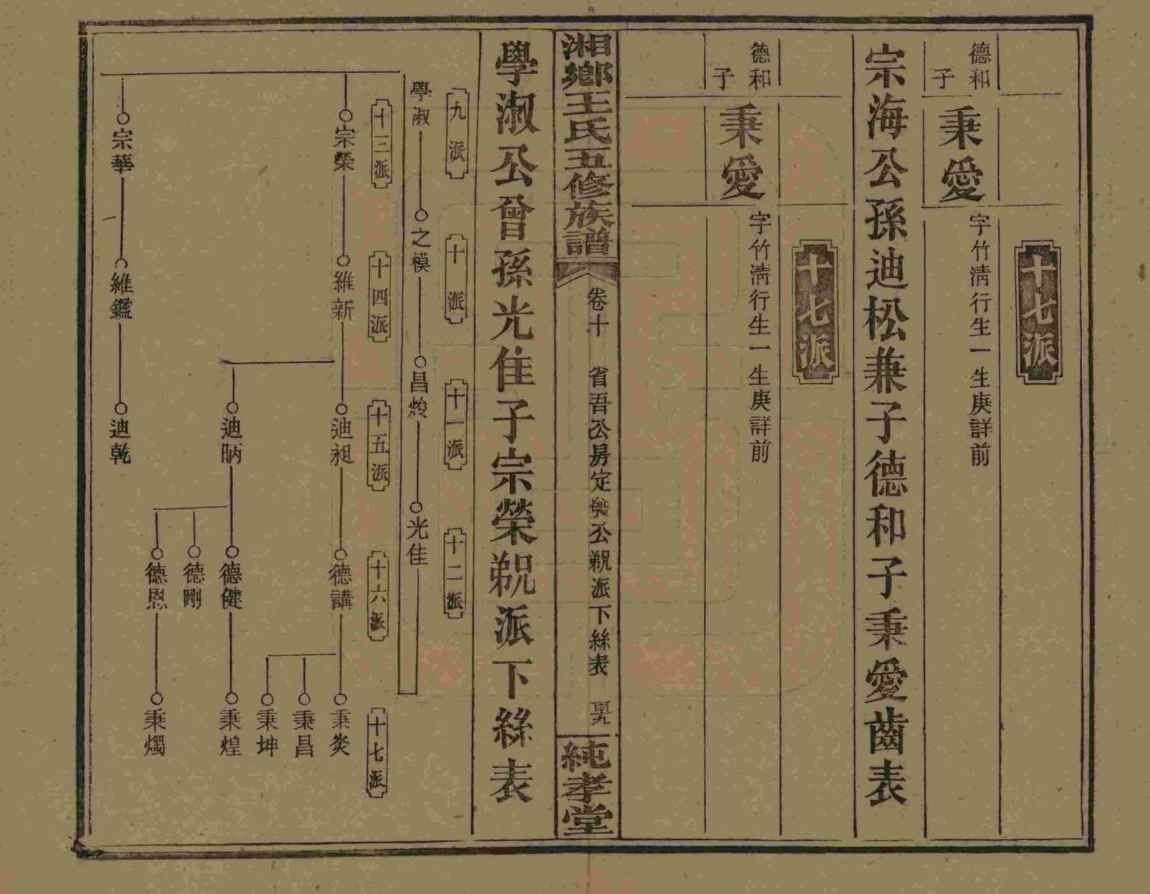 十七派
德和子
秉愛
字竹清行生一生庚詳前
宗海公孫迪松兼子德和子秉愛齒表
十七派
德和子
秉愛
字竹清行生一生庚詳前
湘鄉王氏五修族譜
卷十
省吾公房定樂公覜派下絲表
純孝堂
學淑公曾孫光佳子宗榮覜派下絲表
九派
十派
十一派
十二派
學淑
之模
昌燉
光佳
十三派
十四派
十五派
十六派
十七派
宗榮
維新
迪昶
德講
秉炎
秉昌
秉坤
迪昞
德健
秉煌
德剛
德恩
秉燭
宗華
維鑑
迪乾